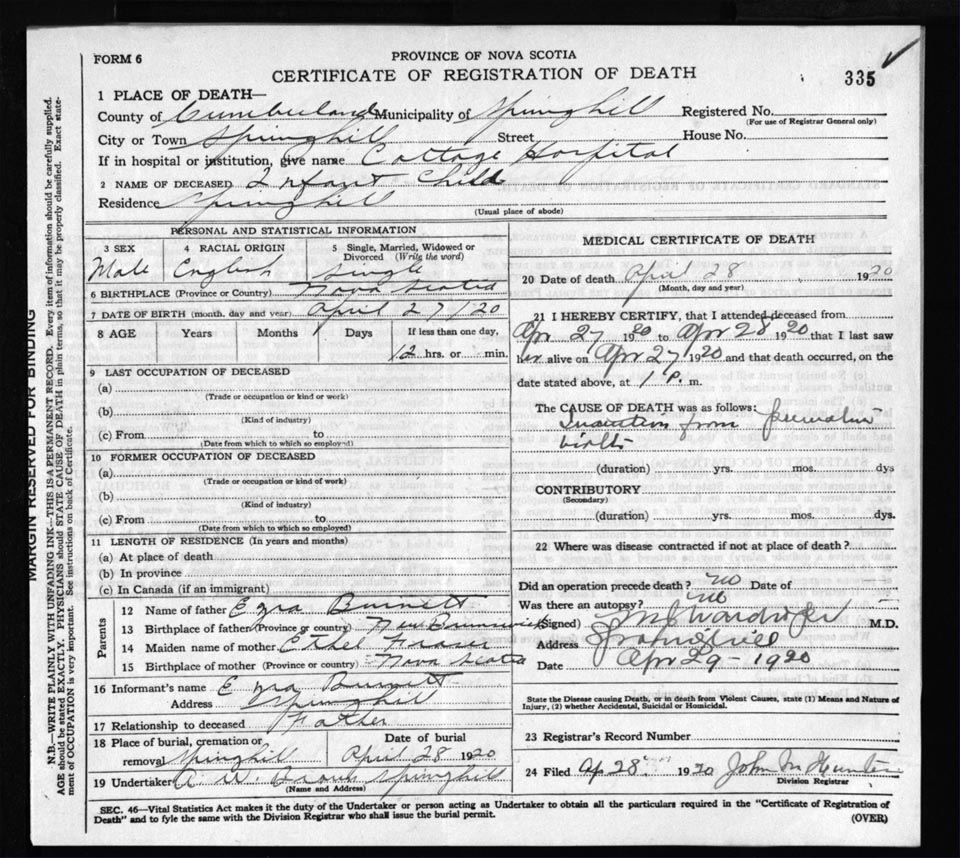 FORM 6
PROVINCE OF NOVA SCOTIA
CERTIFICATE OF REGISTRATION OF DEATH
335
1 PLACE OF DEATH—
County of Cumberland Municipality of Springhill Registered No.
(For use of Registrar General only)
City or Town Springhill Street House No.
If in hospital or institution, give name Cottage Hospital
2 NAME OF DECEASED Infant Child
Residence Springhill
(Usual place of abode)
PERSONAL AND STATISTICAL INFORMATION
3 SEX 4 RACIAL ORIGIN 5 Single, Married, Widowed or Divorced (Write the word)
Male English Single
6 BIRTHPLACE (Province or Country) Nova Scotia
7 DATE OF BIRTH (month, day and year) April 27/20
8 AGE Years Months Days If less than one day,
12 hrs. or min.
9 LAST OCCUPATION OF DECEASED
(a)
(Trade or occupation or kind or work)
(b)
(Kind of industry)
(c) From to
(Date from which to which so employed)
10 FORMER OCCUPATION OF DECEASED
(a)
(Trade or occupation or kind of work)
(b)
(Kind of industry)
(c) From to
(Date from which to which so employed)
11 LENGTH OF RESIDENCE (In years and months)
(a) At place of death
(b) In province
(c) In Canada (if an immigrant)
Parents
12 Name of father Ezra Burnett
13 Birthplace of father (Province or country) New Brunswick
14 Maiden name of mother Ethel Fraser
15 Birthplace of mother (Province or country) Nova Scotia
16 Informant's name Ezra Burnett
Address Springhill
17 Relationship to deceased Father
18 Place of burial, cremation or Date of burial
removal Springhill April 28 1920
19 Undertaker A. W. Brown Springhill
(Name and Address)
MEDICAL CERTIFICATE OF DEATH
20 Date of death April 28 1920
(Month, day and year)
21 I HEREBY CERTIFY, that I attended deceased from
Apr 27 1920 to Apr 28 1920 that I last saw
her alive on Apr 27 1920 and that death occurred, on the
date stated above, at 1 P. m.
The CAUSE OF DEATH was as follows:
Inanition from premature
birth
(duration) yrs. mos. dys
CONTRIBUTORY
(Secondary)
(duration) yrs. mos. dys.
22 Where was disease contracted if not at place of death?
Did an operation precede death? no Date of
Was there an autopsy? no
(Signed) M.D.
Address Springhill
Date Apr 29 - 1920
State the Disease causing Death, or in death from Violent Causes, state (1) Means and Nature of
Injury, (2) whether Accidental, Suicidal or Homicidal.
23 Registrar's Record Number
24 Filed Ap 28 1920 John M Hunter
Division Registrar
SEC. 46—Vital Statistics Act makes it the duty of the Undertaker or person acting as Undertaker to obtain all the particulars required in the "Certificate of Registration of
Death" and to fyle the same with the Division Registrar who shall issue the burial permit.
(OVER)
MARGIN RESERVED FOR BINDING
N.B.—WRITE PLAINLY WITH UNFADING INK—THIS IS A PERMANENT RECORD. Every item of information should be carefully supplied.
AGE should be stated EXACTLY. PHYSICIANS should STATE CAUSE OF DEATH in plain terms, so that it may be properly classified. Exact state-
ment of OCCUPATION is very important. See instructions on back of Certificate.